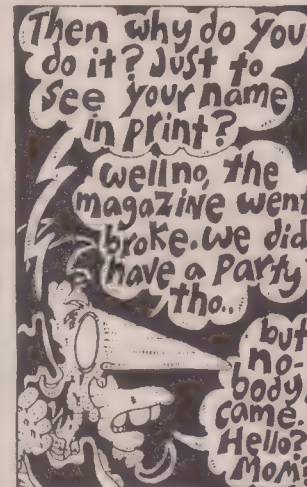 Then why do you
do it? Just to
see your name
in print?
well no, the
magazine went
broke. we did
have a party
tho..
but
no-
body
came.
Hello?
Mom?